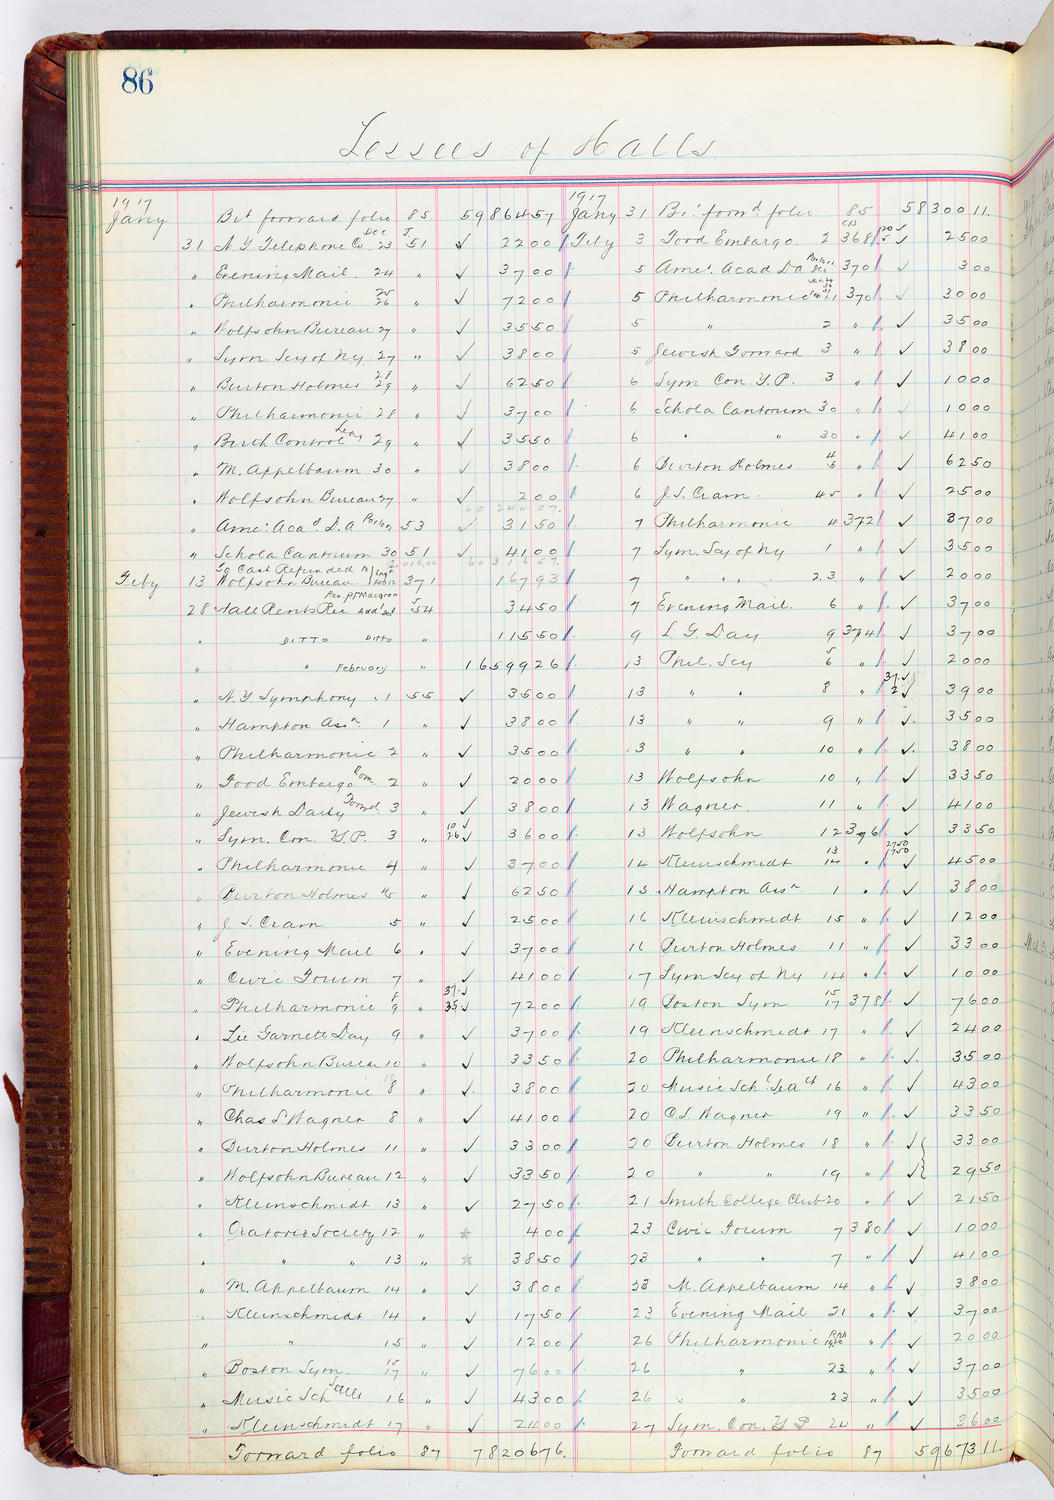 86
Lessees of Halls
1917
Jany Bt forward folio 85 59864 57
31 N.Y. Telephone Co Dec 23 J 51 ✓ 22 00
" Evening Mail 24 " ✓ 37 00
" Philharmonic 25 26 " ✓ 72 00
" Wolfsohn Bureau 27 " ✓ 35 50
" Sym. Scy of Ny. 27 " ✓ 38 00
" Burton Holmes 28 29 " ✓ 62 50
" Philharmonic 28 " ✓ 37 00
" Birth Control Leag 29 " ✓ 35 50
" M. Appelbaum 30 " ✓ 38 00
" Wolfsohn Bureau 27 " ✓ 2 00
60 244 07.
" Ame: Acad D. A Parlor 53 ✓ 31 50
" Schola Cantorum 30 51 ✓ 41 00
60 316 57.
To Cash Refunded
Feby 13 Wolfsohn Bureau. Feb 12 371 167 93
Per. Pf Macgron
28 Hall Rents Rec Add'al J 54 34 50
" DITTO DITTO " 115 50
" " February " 16599 26
" N.Y. Symphony 1 55 ✓ 35 00
" Hampton Assn 1 " ✓ 38 00
" Philharmonic 2 " ✓ 35 00
" Food Embargo Com 2 " ✓ 20 00
" Jewish Daily Forwd 3 " ✓ 38 00
" Sym. Con. Y.P. 3 " 10 ✓ 26 ✓ 36 00
" Philharmonic 4 " ✓ 37 00
" Burton Holmes 4/5 " ✓ 62 50
" J. S. Cram 5 " ✓ 25 00
" Evening Mail 6 " ✓ 37 00
" Civic Forum 7 " ✓ 41 00
" Philharmonic 8 9 " 37 ✓ 35 ✓ 72 00
" Lee Garnett Day 9 " ✓ 37 00
" Wolfsohn Bureau 10 " ✓ 33 50
" Philharmonic 8 " ✓ 38 00
" Chas L Wagner 8 " ✓ 41 00
" Burton Holmes 11 " ✓ 33 00
" Wolfsohn Bureau 12 " ✓ 33 50
" Kleinschmidt 13 " ✓ 27 50
" Oratorio Society 12 " * 4 00
" " " 13 " * 38 50
" M. Appelbaum 14 " ✓ 38 00
" Kleinschmidt 14 " ✓ 17 50
" " 15 " ✓ 12 00
" Boston Sym 15 17 " ✓ 76 00
" Music Sch 16 " ✓ 43 00
" Kleinschmidt 17 " ✓ 24 00
Forward folio 87 78206 76.
1917
Jany 31 Bt. forwd folio 85 58300 11.
Feby 3 Food Embargo. 2 CB 368 20 ✓ 5 ✓ 25 00
5 Ame: Acad Da Parlors Dec 370 ✓ 3 00
5 Philharmonic 370 ✓ 30 00
5 " 2 " ✓ 35 00
5 Jewish Forward 3 " ✓ 38 00
6 Sym Con. Y.P. 3 " ✓ 10 00
6 Schola Cantorum 30 " ✓ 10 00
6 " " 30 " ✓ 41 00
6 Burton Holmes 4 5 " ✓ 62 50
6 J.S. Cram. 45 " ✓ 25 00
7 Philharmonic 4 372 ✓ 37 00
7 Sym. Scy of Ny 1 " ✓ 35 00
7 " " " 2.3. " ✓ 20 00
7 Evening Mail. 6 " ✓ 37 00
9 L G. Day 9 374 ✓ 37 00
13 Phil. Scy 5 6 " ✓ 20 00
13 " " 8 " 37 ✓ 2 ✓ 39 00
13 " " 9 " ✓ 35 00
13 " " 10 " ✓ 38 00
13 Wolfsohn 10 " ✓ 33 50
13 Wagner. 11 " ✓ 41 00
13 Wolfsohn 12 376 ✓ 33 50
14 Kleinschmidt 13 14 " 27 50 17 50 ✓ 45 00
15 Hampton Assn 1 " ✓ 38 00
16 Kleinschmidt 15 " ✓ 12 00
16 Burton Holmes 11 " ✓ 33 00
17 Sym Scy of Ny 14 " ✓ 10 00
19 Boston Sym 15 17 378 ✓ 76 00
19 Kleinschmidt 17 " ✓ 24 00
20 Philharmonic 18 " ✓ 35 00
20 Music Sch 16 " ✓ 43 00
20 C.L. Wagner 19 " ✓ 33 50
20 Burton Holmes 18 " ✓ 33 00
20 " " 19 " ✓ 29 50
21 Smith College Club 20 " ✓ 21 50
23 Civic Forum 7 380 ✓ 10 00
23 " " 7 " ✓ 41 00
23 M. Appelbaum 14 " ✓ 38 00
23 Evening Mail 21 " ✓ 37 00
26 Philharmonic " ✓ 20 00
26 " 23 " ✓ 37 00
26 " " 23 " ✓ 35 00
27 Sym. Con. Y P 24 " ✓ 36 00
Forward folio 87 59673 11.